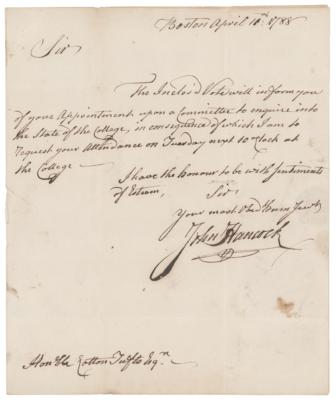 Boston April 10th 1788
Sir
The Inclos'd Vote will inform you
of your Appointment upon a Committee to enquire into
the State of the College, in consequence of which I am to
request your Attendance on Tuesday next Clock at
the College
I have the honour to be with Sentiments
of Esteem, Sir
Your most Obed Hum Servt
John Hancock
Honble Cotton Tufts Esqr